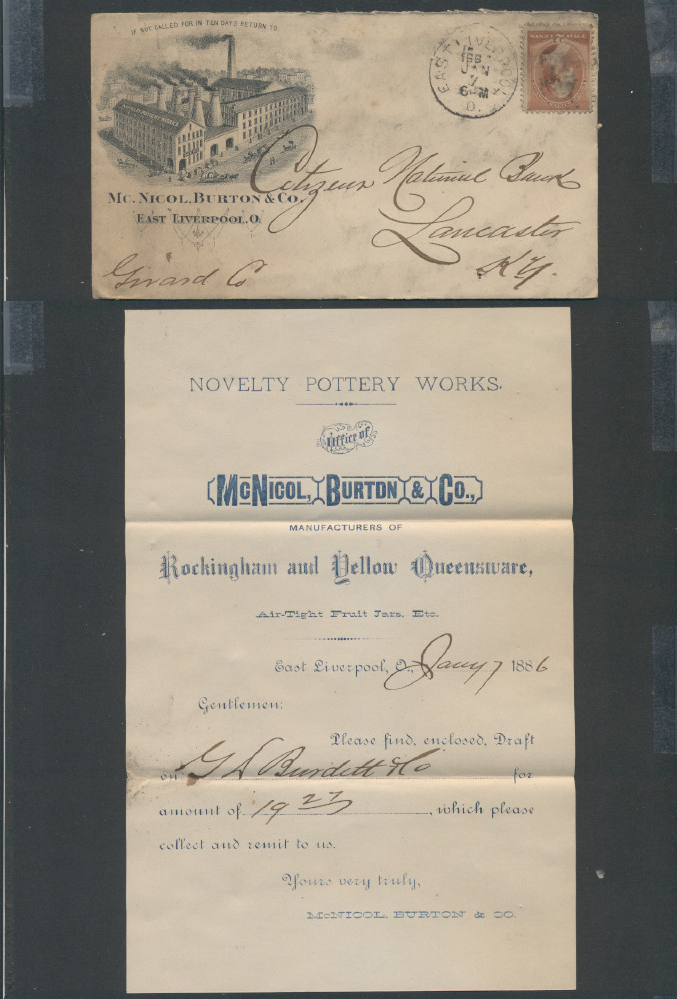 IF NOT CALLED FOR IN TEN DAYS RETURN TO
EAST LIVERPOOL
JAN
7
O.
Mc. Nicol, Burton & Co.
East Liverpool, O.
Citizens National Bank
Lancaster
Ky.
Girard Co
NOVELTY POTTERY WORKS.
Office of
McNicol, Burton & Co.,
MANUFACTURERS OF
Rockingham and Yellow Queensware,
Air-Tight Fruit Jars, Etc.
East Liverpool, O., Jany 7 1886
Gentlemen:
Please find, enclosed, Draft
on G D Burdett & Co for
amount of 19 27, which please
collect and remit to us.
Yours very truly,
McNICOL, BURTON & CO.